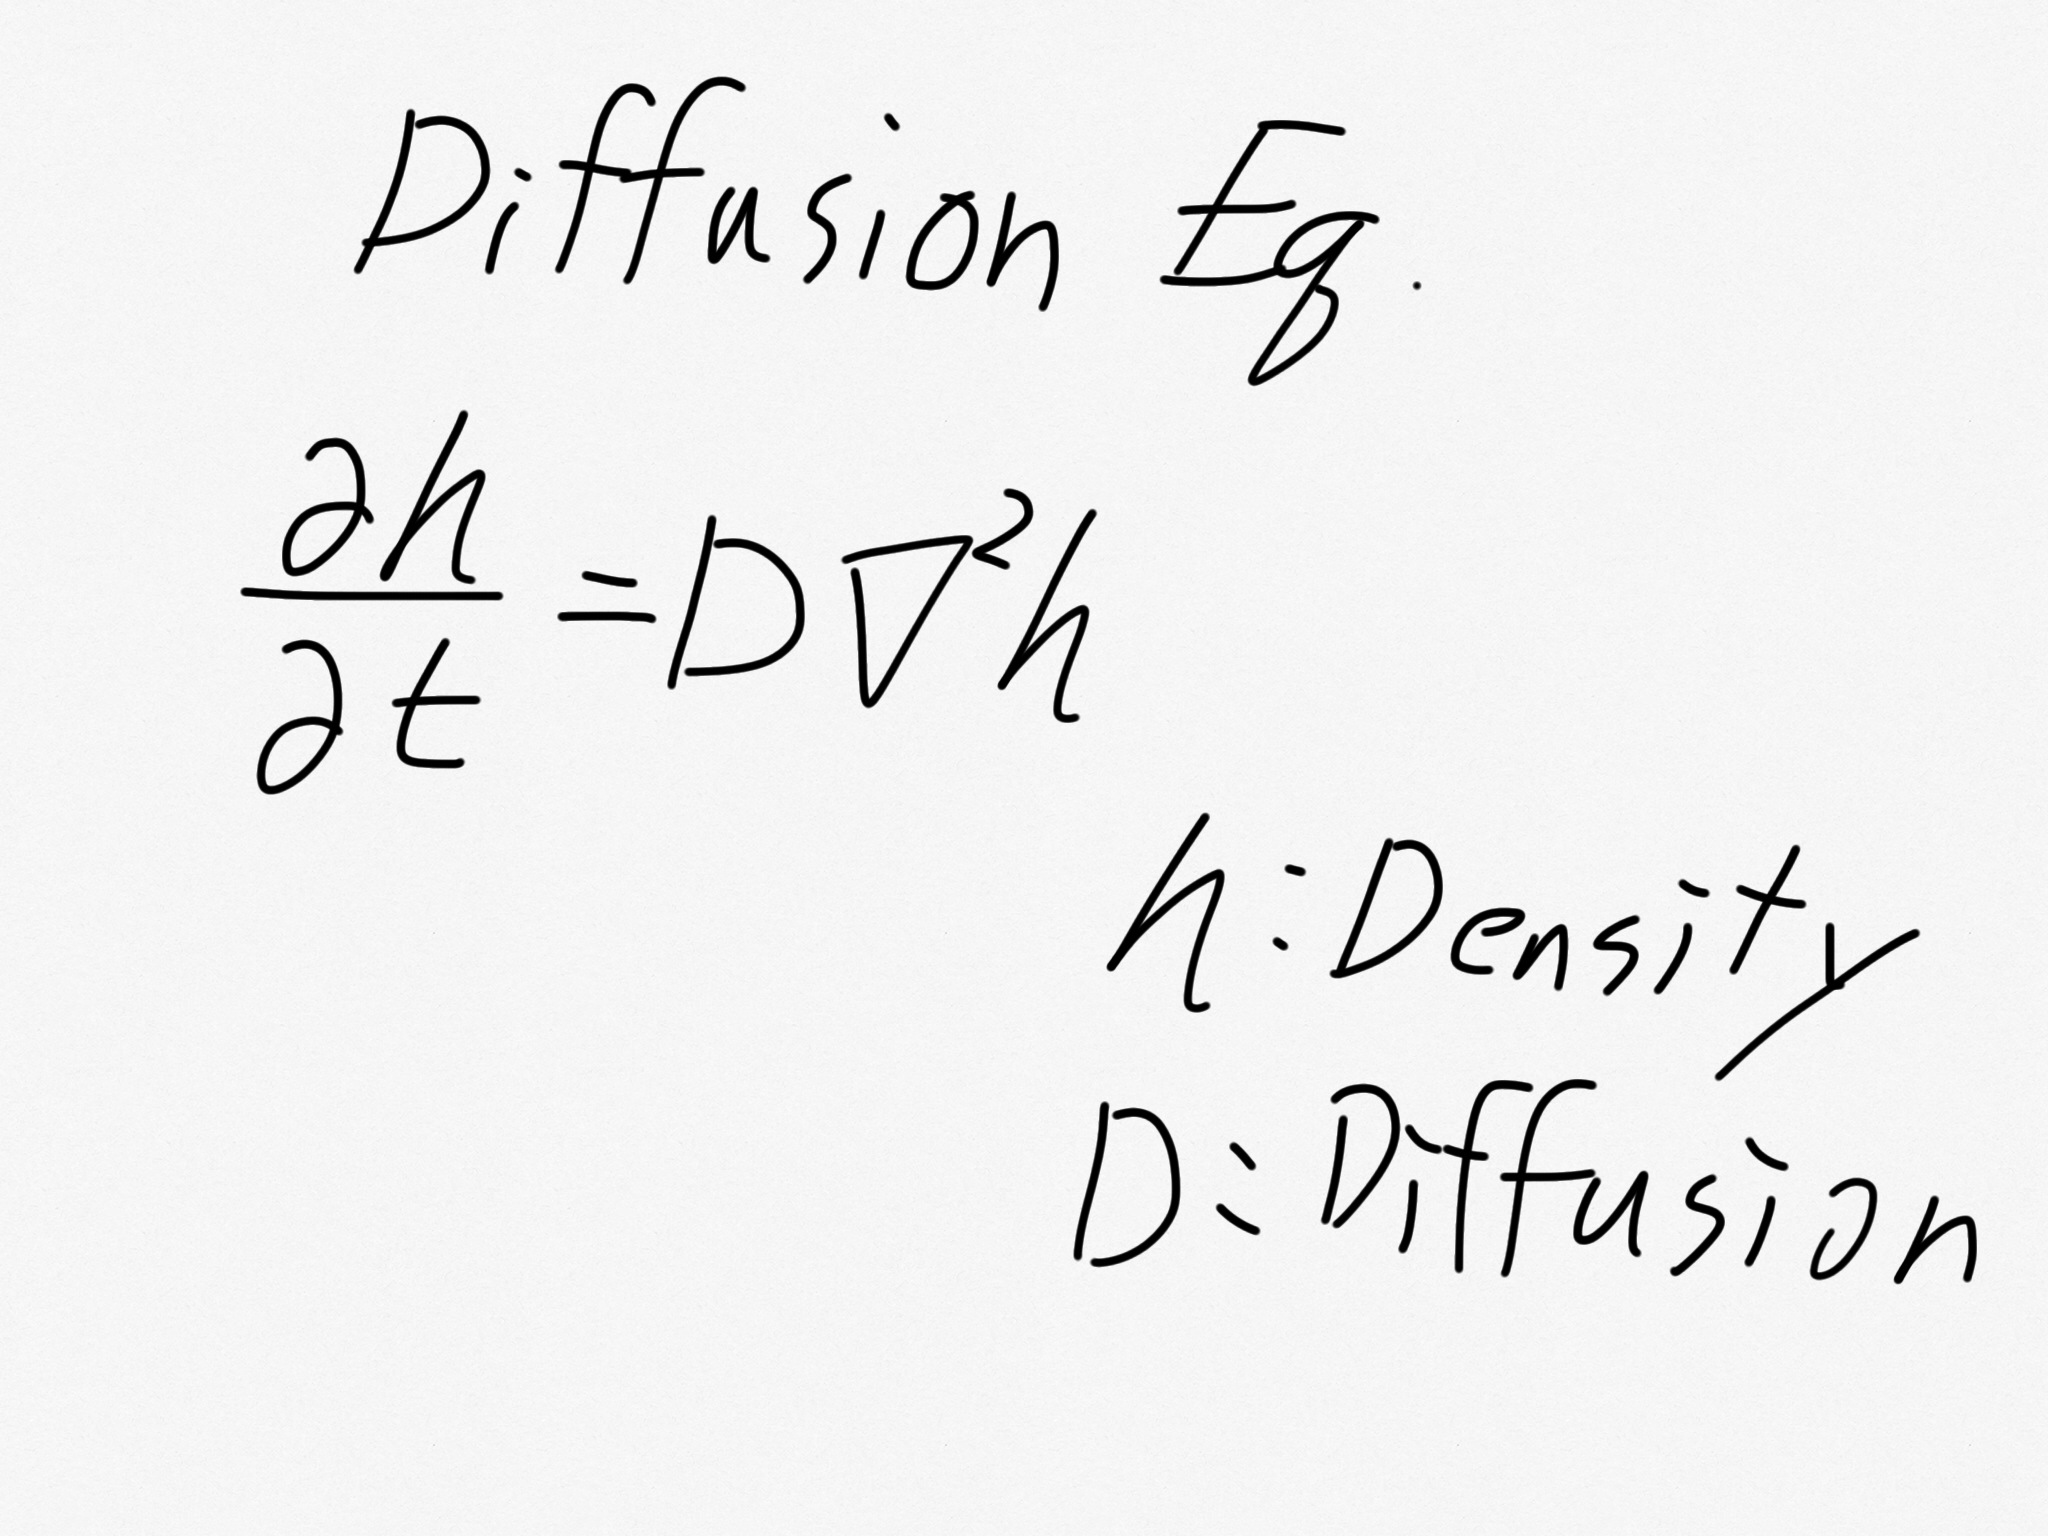 Diffusion Eq.
∂h/∂t = D∇²h
h: Density
D: Diffusion